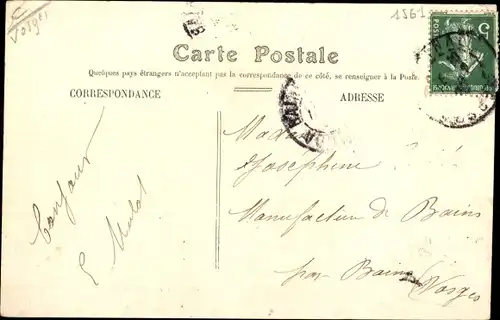 Vosges
1561
Carte Postale
Quelques pays étrangers n'acceptant pas la correspondance de ce côté, se renseigner à la Poste.
CORRESPONDANCE
ADRESSE
Bonjour
E Mulot
Madame
Joséphine
Manufacture de Bains
par Bains (Vosges)